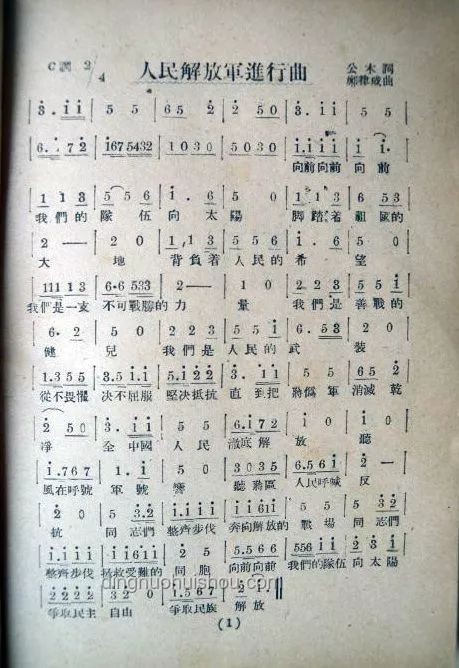 C調 2/4 人民解放軍進行曲 公木詞
鄭律成曲
3. i i | 5 5 | 6 5 2 | 2 5 0 | 3. i i | 5 5 |
6. 7 2 | i 6 7 5 4 3 2 | 1 0 3 0 | 5 0 3 0 | i. i i i | i i. |
向前向前 向前
1 1 3 | 5 5 6 | i . 6 | 5 0 | 1 1 3 | 6 5 3 |
我們的 隊 伍 向 太 陽 脚踏着 祖國的
2 — | 2 0 | 1, 1 3 | 5 5 6 | i . 6 | 5 0 |
大 地 背負着 人民的 希 望
1 1 1 1 3 | 6.6 5 3 3 | 2 — | 1 0 | 2 2 3 | 5 5 1 |
我們是一支 不可戰勝的 力 量 我們是 善戰的
6. 2 | 5 0 | 2 2 3 | 5 5 i | 6. 5 3 | 2 0 |
健 兒 我們是 人民的 武 裝
1. 3 5 5 | 3. 5 i i | 5. i 2 2 | 3. i i | 5 5 | 6 5 2 |
從不畏懼 决不屈服 堅决抵抗 直 到把 蔣僞軍 消滅 乾
2 5 0 | 3. i i | 5 5 | 6. i 7 2 | i 0 | i 0 |
淨 全中國 人民 澈底解 放 聽
i . 7 6 7 | 1. i | 5 0 | 3 0 3 5 | 6. 5 6 i | 2 — |
風在呼號 軍 號 響 聽 區 人民呼喊 反
2 0 | 5 3 2 | i. i i i | i i 6 i i | 5 5 | 5 3 2 |
抗 同 志們 整齊步伐 奔向解放的 戰場 同志們
i. i i i | i i 6 i i | 2 5 | 5. 5 6 6 | 5 5 6 i i | 2 3 i |
整齊步伐 拯救受難的 同 胞 向前向前 我們的隊伍 向太陽
2 2 2 2 | 3 2 0 | 1. 5 6 7 | 2 0 ‖
爭取民主 自由 爭取民族 解放
dingnuohuishou.com
(1)